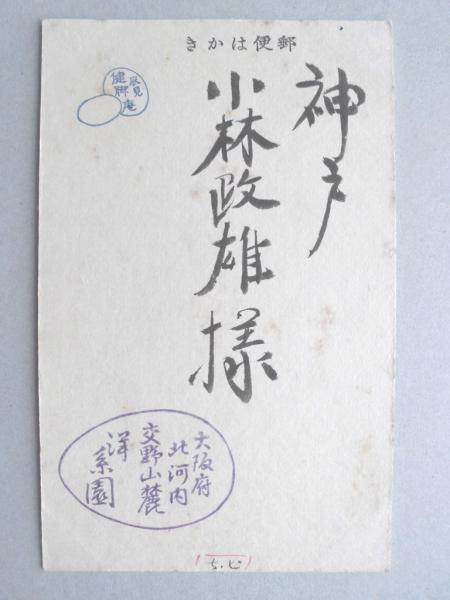 郵便はかき
神戸
小林政雄様
健脚庵
大阪府
北河内
交野山麓
洋糸園